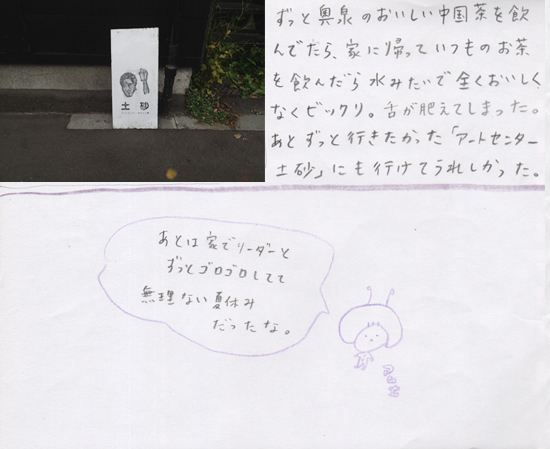 土砂
ずっと奥泉のおいしい中国茶を飲
んでたら、家に帰っていつものお茶
を飲んだら水みたいで全くおいしく
なくビックリ。舌が肥えてしまった。
あとずっと行きたかった「アートセンター
土砂」にも行けてうれしかった。
あとは家でリーダーと
ずっとゴロゴロしてて
無理ない夏休み
だったな。